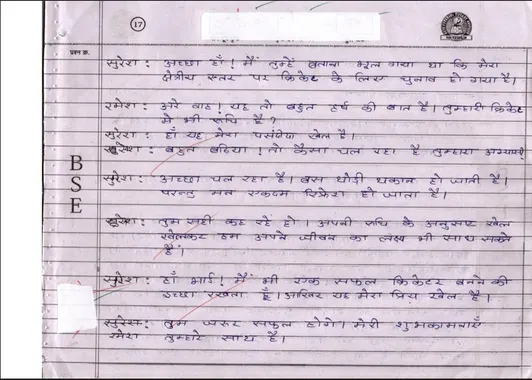 17
प्रश्न क्र.
सुरेश : अच्छा हाँ! मैं तुम्हें बताना भूल गया था कि मेरा
क्षेत्रीय स्तर पर क्रिकेट के लिए चुनाव हो गया है।
रमेश : अरे वाह! यह तो बहुत हर्ष की बात है। तुम्हारी क्रिकेट
में भी रुचि है?
सुरेश : हाँ यह मेरा पसंदीदा खेल है।
बहुत बढ़िया! तो कैसा चल रहा है तुम्हारा अभ्यास
सुरेश : अच्छा चल रहा है। बस थोड़ी थकान हो जाती है।
परन्तु मन एकदम फ्रेश हो जाता है।
तुम सही कह रहे हो। अपनी रुचि के अनुसार खेल
खेलकर हम अपने जीवन का लक्ष्य भी साध सकते
हैं।
सुरेश : हाँ भाई! मैं भी एक सफल क्रिकेटर बनने की
इच्छा रखता हूँ। आखिर यह मेरा प्रिय खेल है।
सुरेश : तुम जरूर सफल होगे। मेरी शुभकामनाएँ
रमेश तुम्हारे साथ है।
BSE